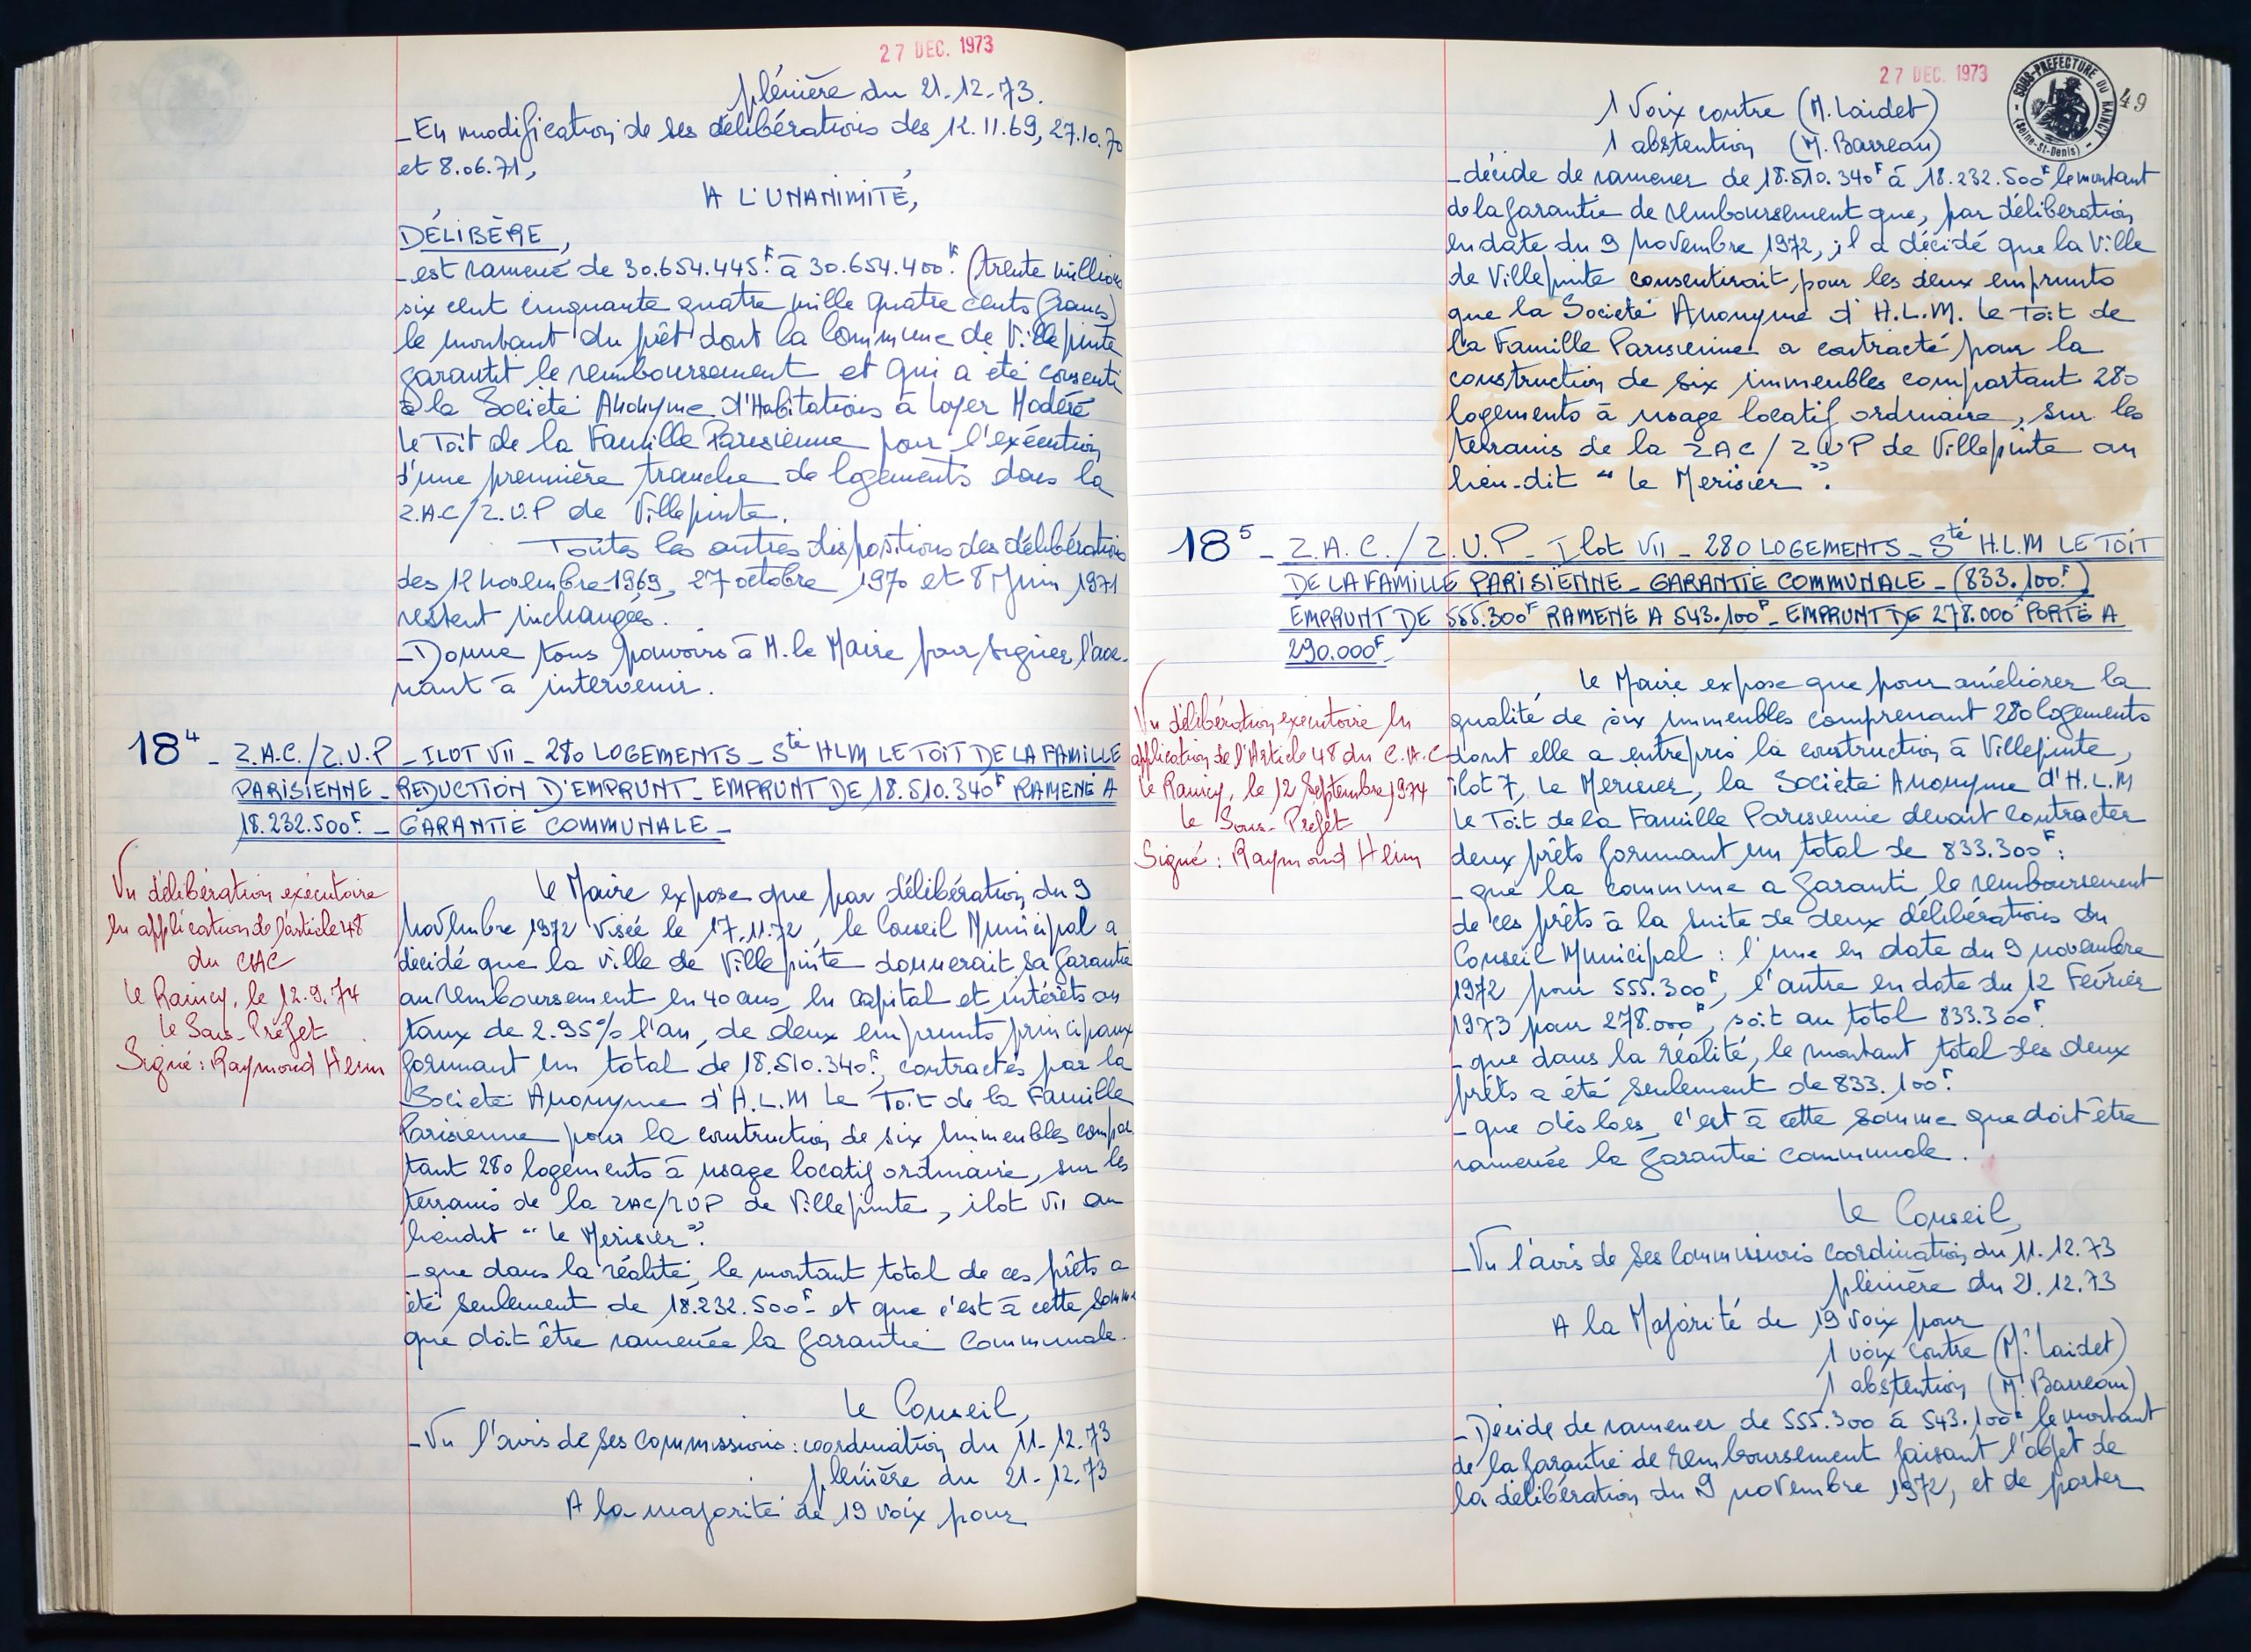 27 DEC. 1973
plénière du 21.12.73.
_En modification de ses délibérations des 12.11.69, 27.10.70
et 8.06.71,
A L'UNANIMITÉ,
DÉLIBÈRE,
_est ramené de 30.654.445F. à 30.654.400F. (trente millions
six cent cinquante quatre mille quatre cents francs)
le montant du prêt dont la Commune de Villepinte
garantit le remboursement et qui a été consenti
à la Société Anonyme d'Habitations à Loyer Modéré
Le Toit de la Famille Parisienne pour l'exécution
d'une première tranche de logements dans la
Z.A.C/Z.U.P de Villepinte.
Toutes les autres dispositions des délibérations
des 12 novembre 1969, 27 octobre 1970 et 8 Juin 1971
restent inchangées.
_Donne tous pouvoirs à M. le Maire pour signer l'ave-
nant à intervenir.
18 4 - Z.A.C./Z.U.P _ ILOT VII _ 280 LOGEMENTS _ Sté HLM LE TOIT DE LA FAMILLE
PARISIENNE _ REDUCTION D'EMPRUNT _ EMPRUNT DE 18.510.340F RAMENÉ A
18.232.500F. _ GARANTIE COMMUNALE _
Vu délibération exécutoire
en application de l'article 48
du CAC
Le Raincy, le 12.9.74
Le Sous-Préfet
Signé : Raymond Heim
Le Maire expose que par délibération du 9
novembre 1972 visée le 17.11.72, le Conseil Municipal a
décidé que la ville de Villepinte donnerait sa garantie
au remboursement en 40 ans, en capital et intérêts au
taux de 2.95% l'an, de deux emprunts principaux
formant un total de 18.510.340F., contractés par la
Société Anonyme d'H.L.M Le Toit de la Famille
Parisienne pour la construction de six immeubles compor
tant 280 logements à usage locatif ordinaire, sur les
terrains de la ZAC/ZUP de Villepinte, ilot VII au
lieudit "Le Merisier".
_que dans la réalité, le montant total de ces prêts a
été seulement de 18.232.500F- et que c'est à cette somme
que doit être ramenée la garantie communale.
Le Conseil,
_Vu l'avis de ses commissions : coordination du 11-12.73
plénière du 21-12.73
A la majorité de 19 voix pour
27 DEC. 1973
SOUS-PREFECTURE DU RAINCY
(Seine-St-Denis)
49
1 voix contre (M. Laidet)
1 abstention (M. Barreau)
_décide de ramener de 18.510.340F à 18.232.500F le montant
de la garantie de remboursement que, par délibération
en date du 9 Novembre 1972, il a décidé que la Ville
de Villepinte consentirait, pour les deux emprunts
que la Société Anonyme d'H.L.M. Le Toit de
la Famille Parisienne a contracté pour la
construction de six immeubles comportant 280
logements à usage locatif ordinaire, sur les
terrains de la ZAC/ZUP de Villepinte au
lieu-dit "Le Merisier".
18 5 - Z.A.C./Z.U.P _ Ilot VII _ 280 LOGEMENTS _ Sté H.L.M LE TOIT
DE LA FAMILLE PARISIENNE _ GARANTIE COMMUNALE _ (833.100F.)
EMPRUNT DE 555.300F RAMENÉ A 543.100F _ EMPRUNT DE 278.000F PORTÉ A
290.000F_
Vu délibération exécutoire en
application de l'Article 48 du C.A.C
Le Raincy, le 12 Septembre 1974
Le Sous-Préfet
Signé : Raymond Heim
Le Maire expose que pour améliorer la
qualité de six immeubles comprenant 280 logements
dont elle a entrepris la construction à Villepinte,
ilot 7, Le Merisier, la Société Anonyme d'H.L.M
Le Toit de la Famille Parisienne devait contracter
deux prêts formant un total de 833.300F :
_que la commune a garanti le remboursement
de ces prêts à la suite de deux délibérations du
Conseil Municipal : l'une en date du 9 novembre
1972 pour 555.300F, l'autre en date du 12 Février
1973 pour 278.000F, soit au total 833.300F.
_que dans la réalité, le montant total des deux
prêts a été seulement de 833.100F.
_que dès lors, c'est à cette somme que doit être
ramenée la garantie communale.
Le Conseil,
_Vu l'avis de ses Commissions Coordination du 11.12.73
plénière du 21.12.73
A la Majorité de 19 voix pour
1 voix contre (Mr Laidet)
1 abstention (Mr Barreau)
_Décide de ramener de 555.300 à 543.100F le montant
de la garantie de remboursement faisant l'objet de
la délibération du 9 novembre 1972, et de porter